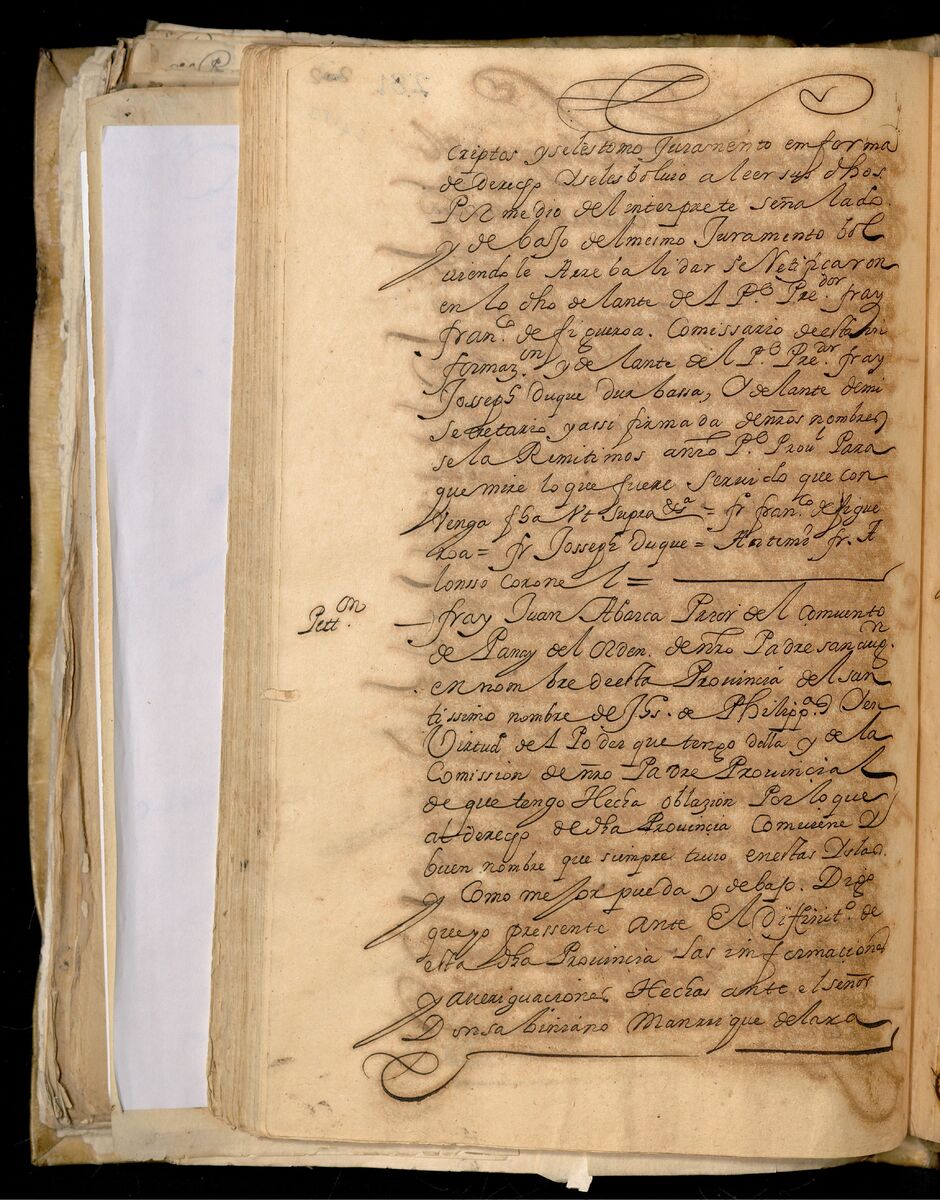 criptos y seles tomo Juramento em forma
de derecho y seles boluio a leer sus dhos
Por medio del interprete señalado.
y de baJo del mesmo Juramento bol
uiendole A rrebalidar se Retificaron
en lo dho delante del Pe. Predor. fray
franco. de figueroa. Comissario de esta in
formazon. y delante del Pe. Predor. fray
Josseph Duque Durbassa, y delante demi
Secretario y assi firmada denros nombres
se la Remitimos anro Pe. Prou.l Para
que mire lo que fuere seruido que con
Venga fha Vt supra &a = fr. franco. de figue
roa = fr Josseph Duque = Antemi fr. A
lonsso Coronel =
Petton.
fray Juan Abarca Prior del comuento
de Panay del orden de nro Padre san aug.n
en nombre deesta Prouincia del san
tissimo nombre de Jhs. de Philippas. y en
Virtud del Poder que tengo della y de la
Comission de nro Padre Prouincial
de que tengo Hecha oblazion Por lo que
al derecho de dha Prouincia Comuiene y
buen nombre que siempre tuuo enestas Yslas.
y Como mejor pueda y debaJo. Digo
que yo pressente ante El diffinito. de
esta dha Prouincia las imformaciones
y aueriguaciones Hechas ante el señor
Don sabiniano Manrrique de lara